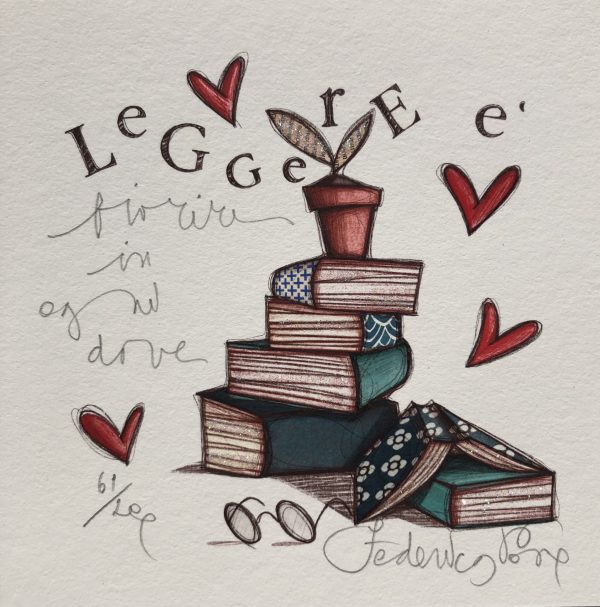 LeGGerE e'
fiorire
in
ogni
dove
Federica